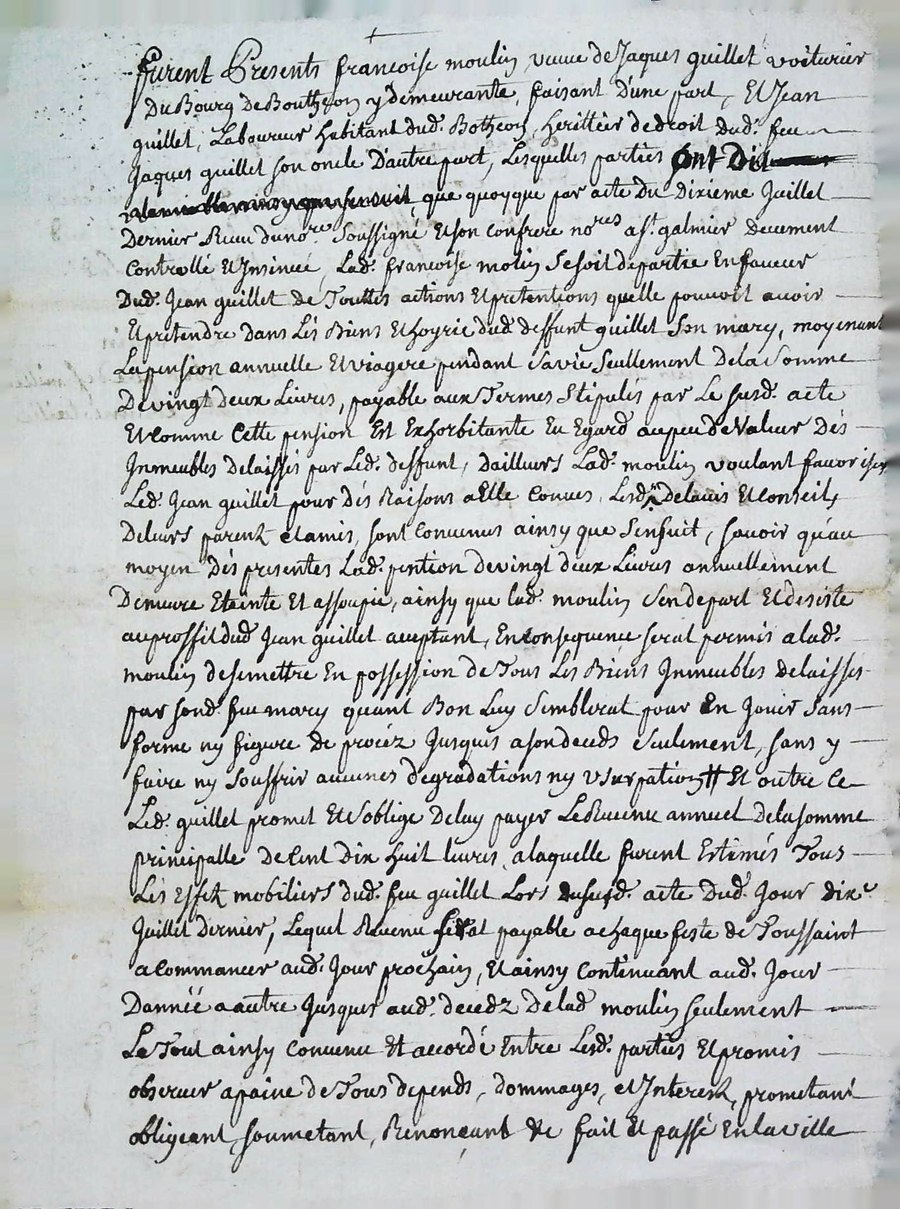 furent Presents francoise moulin, veuve de Jaques guillet voiturier
Du Bourg de Boutheon y demeurante, faisant d'une part, Et Jean
guillet, Laboureur habitant dud. Botheon, herittier de droit dud. feu
Jaques guillet son oncle D'autre part, Lesquelles parties ont Dit
que quoyque par acte Du Dixieme Juillet
Dernier Recu du no.re soussigné Et son confrere no.res a st. galmier decement
Controllé Et Insinué, Lad. francoise molin se soit departie En faveur
Dud. Jean guillet de Touttes actions Et pretentions quelle pouvoit avoir
Et pretendre dans Lés Biens Et hoyrie dud. deffunt guillet son mary, moyenant
La pension annuelle Et viagere pendant sa vie seullement De la somme
De vingt deux Livres, payable aux Termes stipulés par Le susd. acte
Et comme Cette pension Est Exhorbitante Eu Egard au peu de Valeur Dés
Inmeubles delaissés par Led. deffunt, d'ailleurs Lad. moulin voulant favoriser
Led. Jean guillet pour dés Raisons a Elle Conues, Lesd. De lavis Et Conseils
De leurs parents et amis, sont Convenus ainsy que s'ensuit, sçavoir qu'au
moyen dés presentes Lad. pention de vingt deux Livres annuellement
Demeure Eteinte Et assoupie, ainsy que lad. moulin s'en depart Et desiste
au proffit dud. Jean guillet aceptant, En consequence serat permis a lad.
moulin de se mettre En possession de Tous Les Biens Inmeubles delaissés
par sond. feu mary quant Bon Luy semblerat pour En Jouir sans
forme ny figure de procéz Jusques a son deceds seulement, sans y
faire ny souffrir aucunes degradations ny usurpation # Et outre ce
Led. guillet promet Et s'oblige de luy payer Le Revenu annuel de la somme
principalle de Cent Dix huit livres, a laquelle furent Estimés Tous
Lés Effets mobiliers dud. feu guillet Lors du susd. acte Dud. Jour dix.e
Juillet Dernier, Lequel Revenu serat payable a chaque feste de Toussaint
a Commancer aud. Jour prochain, Et ainsy Continuant aud. Jour
D'année a autre Jusques aud. decedz De lad. moulin seulement
Le Tout ainsy Convenu Et accordé Entre Lesd. parties Et promis
observer a paine de Tous depends, dommages, et Interests, prometant
obligeant, soumetant, Renonçant &c fait Et passé En la ville